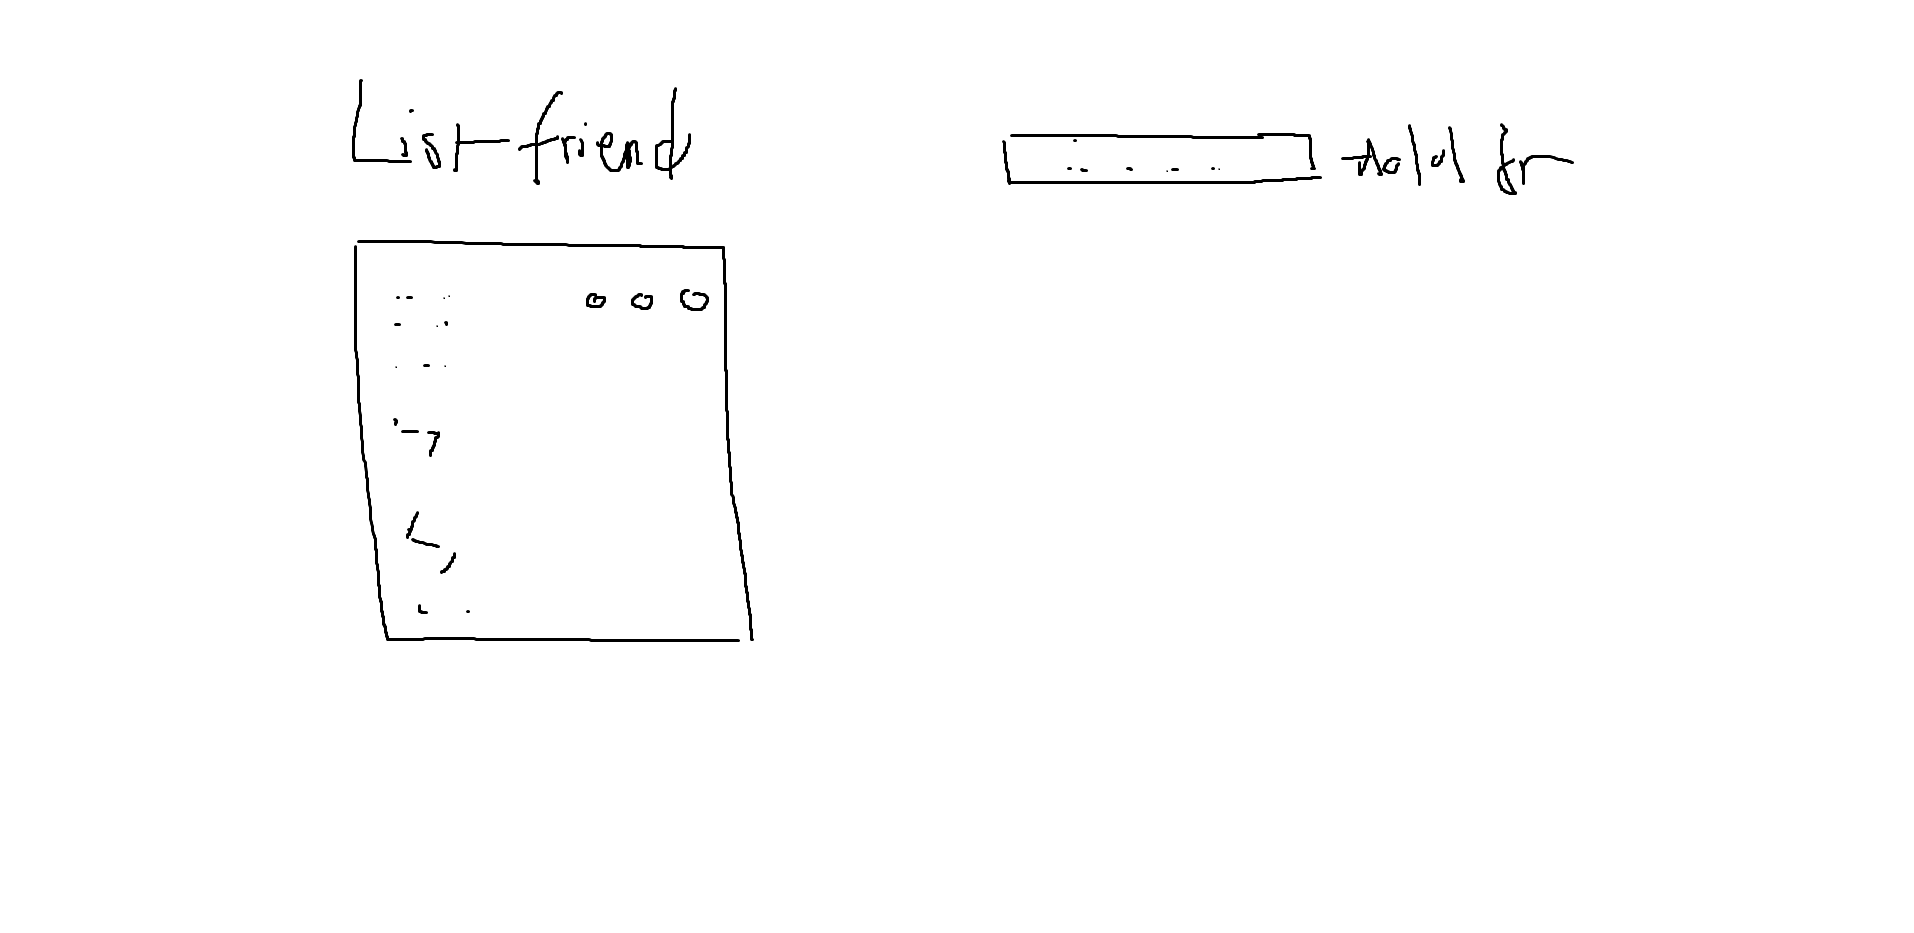 List friend
Add fr